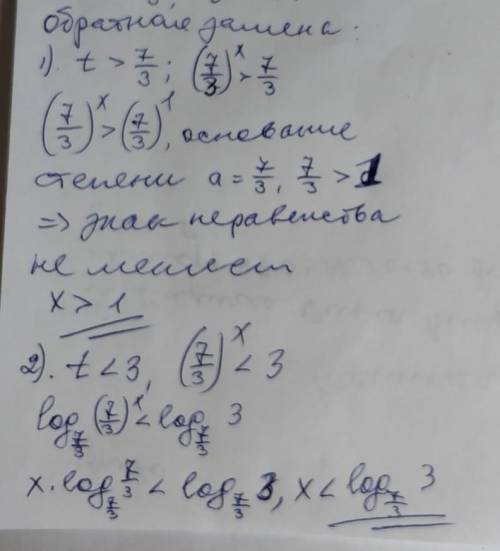 обратная замена:
1). t > 7/3; (7/3)^x > 7/3
(7/3)^x > (7/3)^1, основание
степени a = 7/3, 7/3 > 1
=> знак неравенства
не меняет
x > 1
2). t < 3, (7/3)^x < 3
log_{7/3} (7/3)^x < log_{7/3} 3
x · log_{7/3} 7/3 < log_{7/3} 3, x < log_{7/3} 3